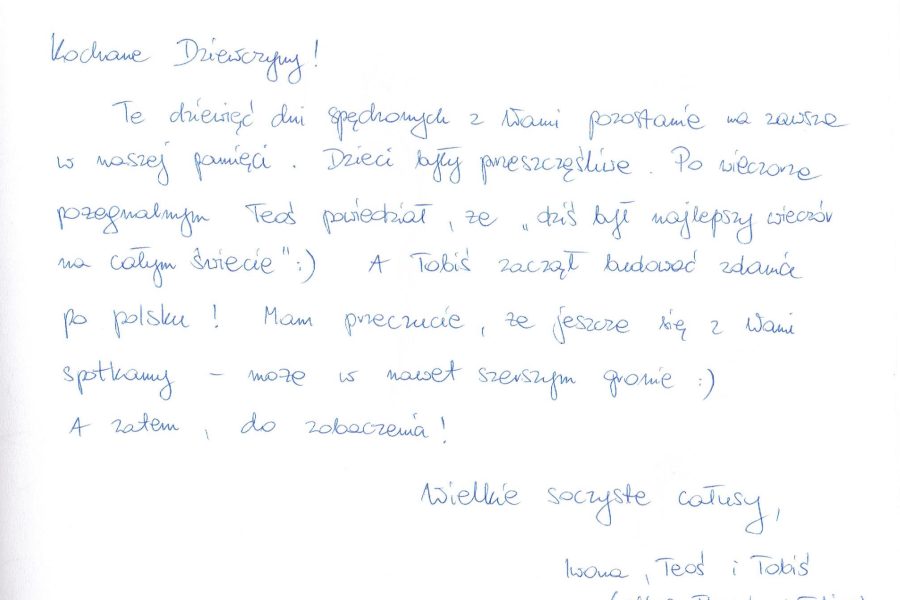 Kochane Dziewczyny!
Te dziewięć dni spędzonych z Wami pozostanie na zawsze
w naszej pamięci. Dzieci były przeszczęśliwe. Po wieczorze
pożegnalnym Teoś powiedział, że „dziś był najlepszy wieczór
na całym świecie" :) A Tobiś zaczął budować zdania
po polsku! Mam przeczucie, że jeszcze się z Wami
spotkamy – może w nawet szerszym gronie :)
A zatem, do zobaczenia!
Wielkie soczyste całusy,
Iwona, Teoś i Tobiś